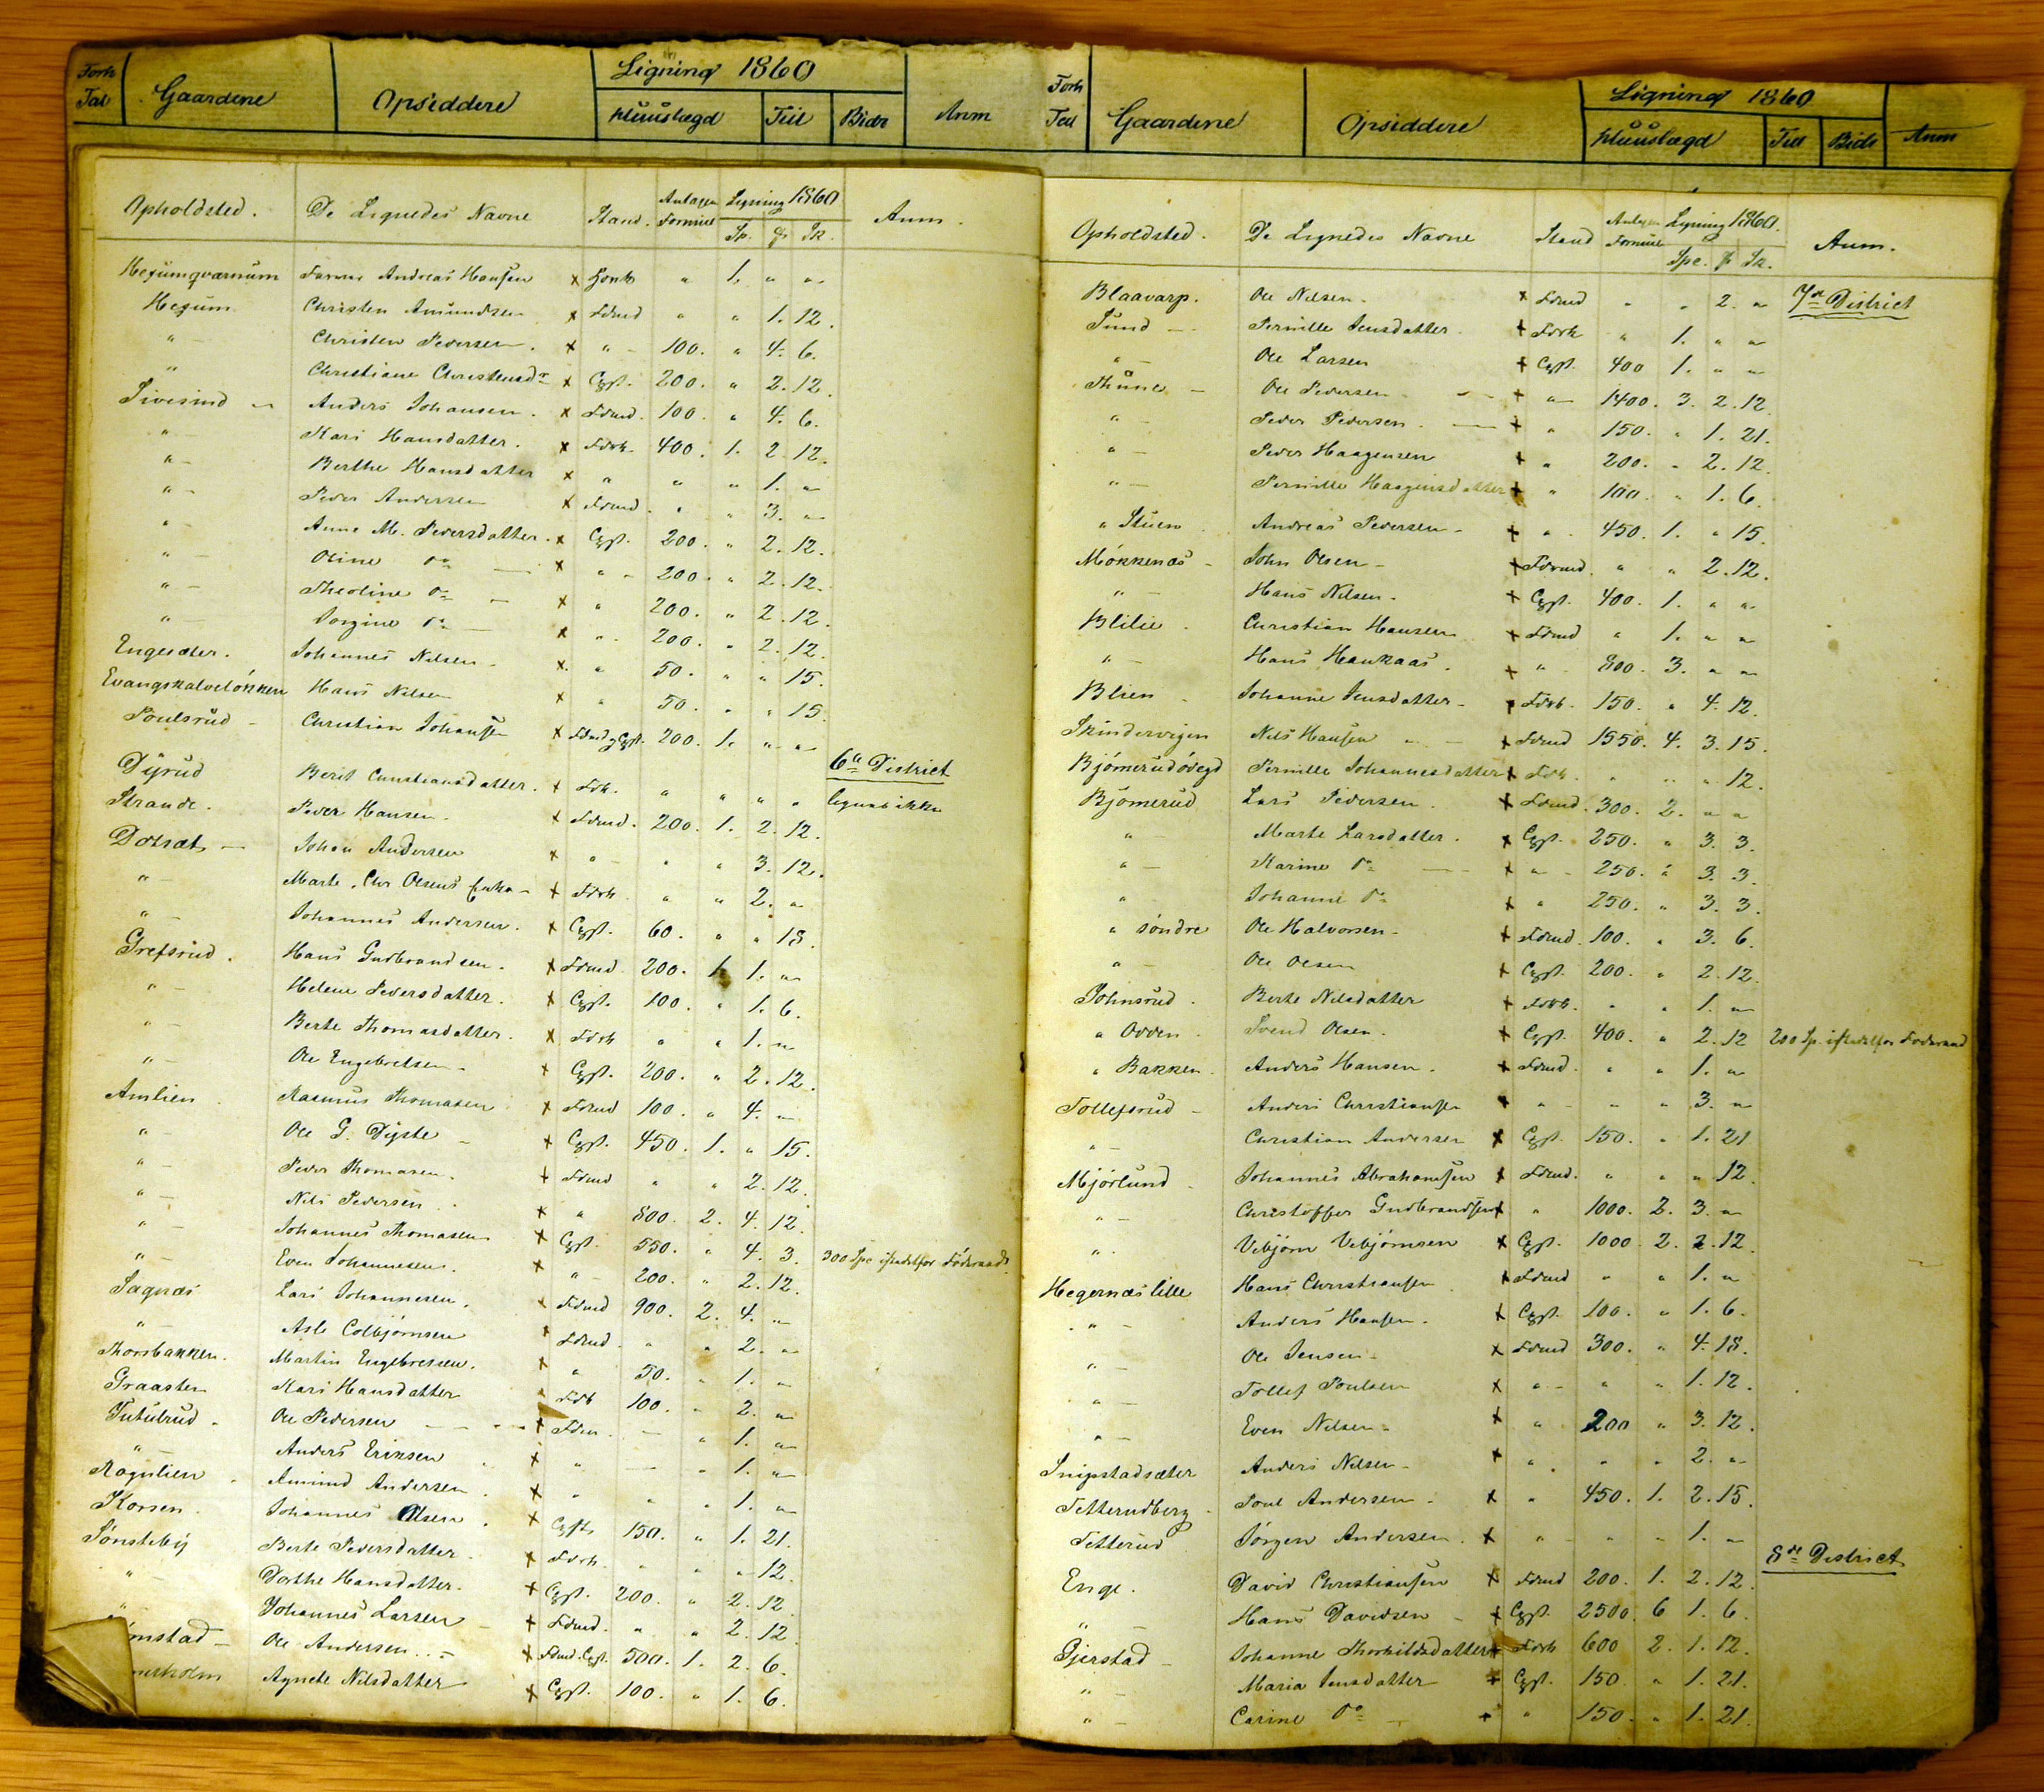 Forh Tal Gaardene Opsiddere Ligning 1860 Huuslægd Tiil Bidr Anm
Forh Tal Gaardene Opsiddere Ligning 1860 Huuslægd Tiil Bidr Anm
Opholdsted. De Lignedes Navne Stand. Antagen Formue Ligning 1860 Sp. ß Sk. Anm.
Hegumqværnum Andreas Hansen x " 1. " "
Hegum Christen Amundsen x Fdmd " " 1. 12.
" Christen Pedersen. x " 100. " 4. 6.
" Christiane Christensdr x 200. " 2. 12.
Sivesind " Anders Johansen. x Fdmd. 100. " 4. 6.
" Kari Hansdatter. x Fdrk. 400. 1. 2. 12.
" Berthe Hansdatter x " " " 1. "
" Peder Andersen x Fdmd. " " 3. "
" Anne M. Pedersdatter. x 200. " 2. 12.
" Oline do x " 200. " 2. 12.
" Theoline do x " 200. " 2. 12.
" Jorgine do x " 200. " 2. 12.
Engesæter. Johannes Nilsen x " 50. " " 15.
Evangskalveløkken Hans Nilsen x " 50. " " 15.
Poulsrud Christian Johansen x 200. 1. " "
6te District
Dyrud Berit Christiansdatter. x Fdk. " " " " lignes ikke
Strande. Peder Hansen. x Fdmd. 200. 1. 2. 12.
Dotsæt Johan Andersen x " " " 3. 12.
" Marte, Chr Olsens Enke x Fdrk " " 2. "
" Johannes Andersen. x 60. " " 18.
Grefsrud. Hans Gudbrandsen. x Fdmd. 200. 1. "
" Helene Pedersdatter. x 100. " 1. 6.
" Berte Thomasdatter. x Fdrk " " 1. "
" Ole Engebretsen x 200. " 2. 12.
Amlien Rasmus Thomasen x Fdmd 100. " 4. "
" Ole G. Dyste x 450. 1. " 15.
" Peder Thomasen. x Fdmd " " 2. 12.
" Nils Pedersen x " 800. 2. 4. 12.
" Johannes Thomasen x 550. " 4. 3. 300 Spe istedetfor Føderaad
" Even Johannesen. x " 200. " 2. 12.
Sagnæs Lars Johannesen. x Fdmd 900. 2. 4. "
" Asle Colbjørnsen x Fdmd. " " 2. "
Thorsbakken. Martin Engebretsen. x " 50. " 1. "
Graasten Kari Hansdatter Fdrk 100. " 2. "
Tutulrud Ole Pedersen x " 1. "
" Anders Eriksen x " " 1. "
Rognlien Amund Andersen x " " " 1. "
Korsen. Johannes Olsen x 150. " 1. 21.
Sønsteby Berte Pedersdatter x Fdrk. " " " 12.
" Dorthe Hansdatter. x 200. " 2. 12.
" Johannes Larsen x Fdmd. " " 2. 12.
mstad Ole Andersen x 500. 1. 2. 6.
erholm Agnete Nilsdatter x 100. " 1. 6.
Opholdsted. De Lignedes Navne Stand Antagen Formue Ligning 1860. Spe. ß Sk. Anm.
Blaavarp. Ole Nilsen. x Fdmd " " 2. " 7de District
Sund Pernille Jensdatter. x Fdrk " 1. " "
" Ole Larsen x 400 1. " "
Thune Ole Pedersen x " 1400. 3. 2. 12.
" Peder Pedersen. x " 150. " 1. 21.
" Peder Haagensen x " 200. " 2. 12.
" Pernille Haagensdatter x " 100. " 1. 6.
" Stuen Andreas Pedersen x " 450. 1. " 15.
Mokkenæs John Olsen x Fdmd. " " 2. 12.
" Hans Nilsen. x 400. 1. " "
Blilie. Christian Hansen x Fdmd " 1. " "
" Hans Haukaas. x " 800. 3. " "
Blien Johanne Jensdatter x Fdrk. 150. " 4. 12.
Skindervigen Nils Hansen x Fdmd 1550. 4. 3. 15.
Bjømerudødegd Pernille Johannesdatter x Fdk. " " " 12.
Bjømerud Lars Pedersen. x Fdmd. 300. 2. " "
" Marte Larsdatter. x 250. " 3. 3.
" Karine do x " 250. " 3. 3.
" Johanne do x " 250. " 3. 3.
" søndre Ole Halvorsen x Fdmd. 100. " 3. 6.
" Ole Olsen x 200. " 2. 12.
Johnsrud. Berte Nilsdatter x Fdrk. " " 1. "
" Odden. Svend Olsen. x 400. " 2. 12 200 Sp. istedetfor Føderaad
" Bakken. Anders Hansen. x Fdmd. " " 1. "
Tollefsrud Anders Christiansen x " " " 3. "
" Christian Andersen x 150. " 1. 21
Mjørlund Johannes Abrahamsen x Fdmd. " " " 12.
" Christoffer Gudbrandsen x " 1000. 2. 3. "
" Vebjørn Vebjørnsen x 1000. 2. 2. 12.
Hegernæs lille Hans Christiansen x Fdmd " " 1. "
" Anders Hansen. x 100. " 1. 6.
" Ole Jensen x Fdmd 300. " 4. 18.
" Tollef Poulsen x " " " 1. 12.
" Even Nilsen x " 200 " 3. 12.
Snipstadsæter Anders Nilsen x " " " 2. "
Tetterudberg Poul Andersen. x " 450. 1. 2. 15.
Tetterud Jørgen Andersen. x " " " 1. "
8de District
Enge. David Christiansen x Fdmd 200. 1. 2. 12.
" Hans Davidsen x 2500. 6 1. 6.
Gjerstad Johanne Thorkildsdatter x Fdrk 600 2. 1. 12.
" Maria Jensdatter x 150 " 1. 21.
" Carine do x " 150. " 1. 21.